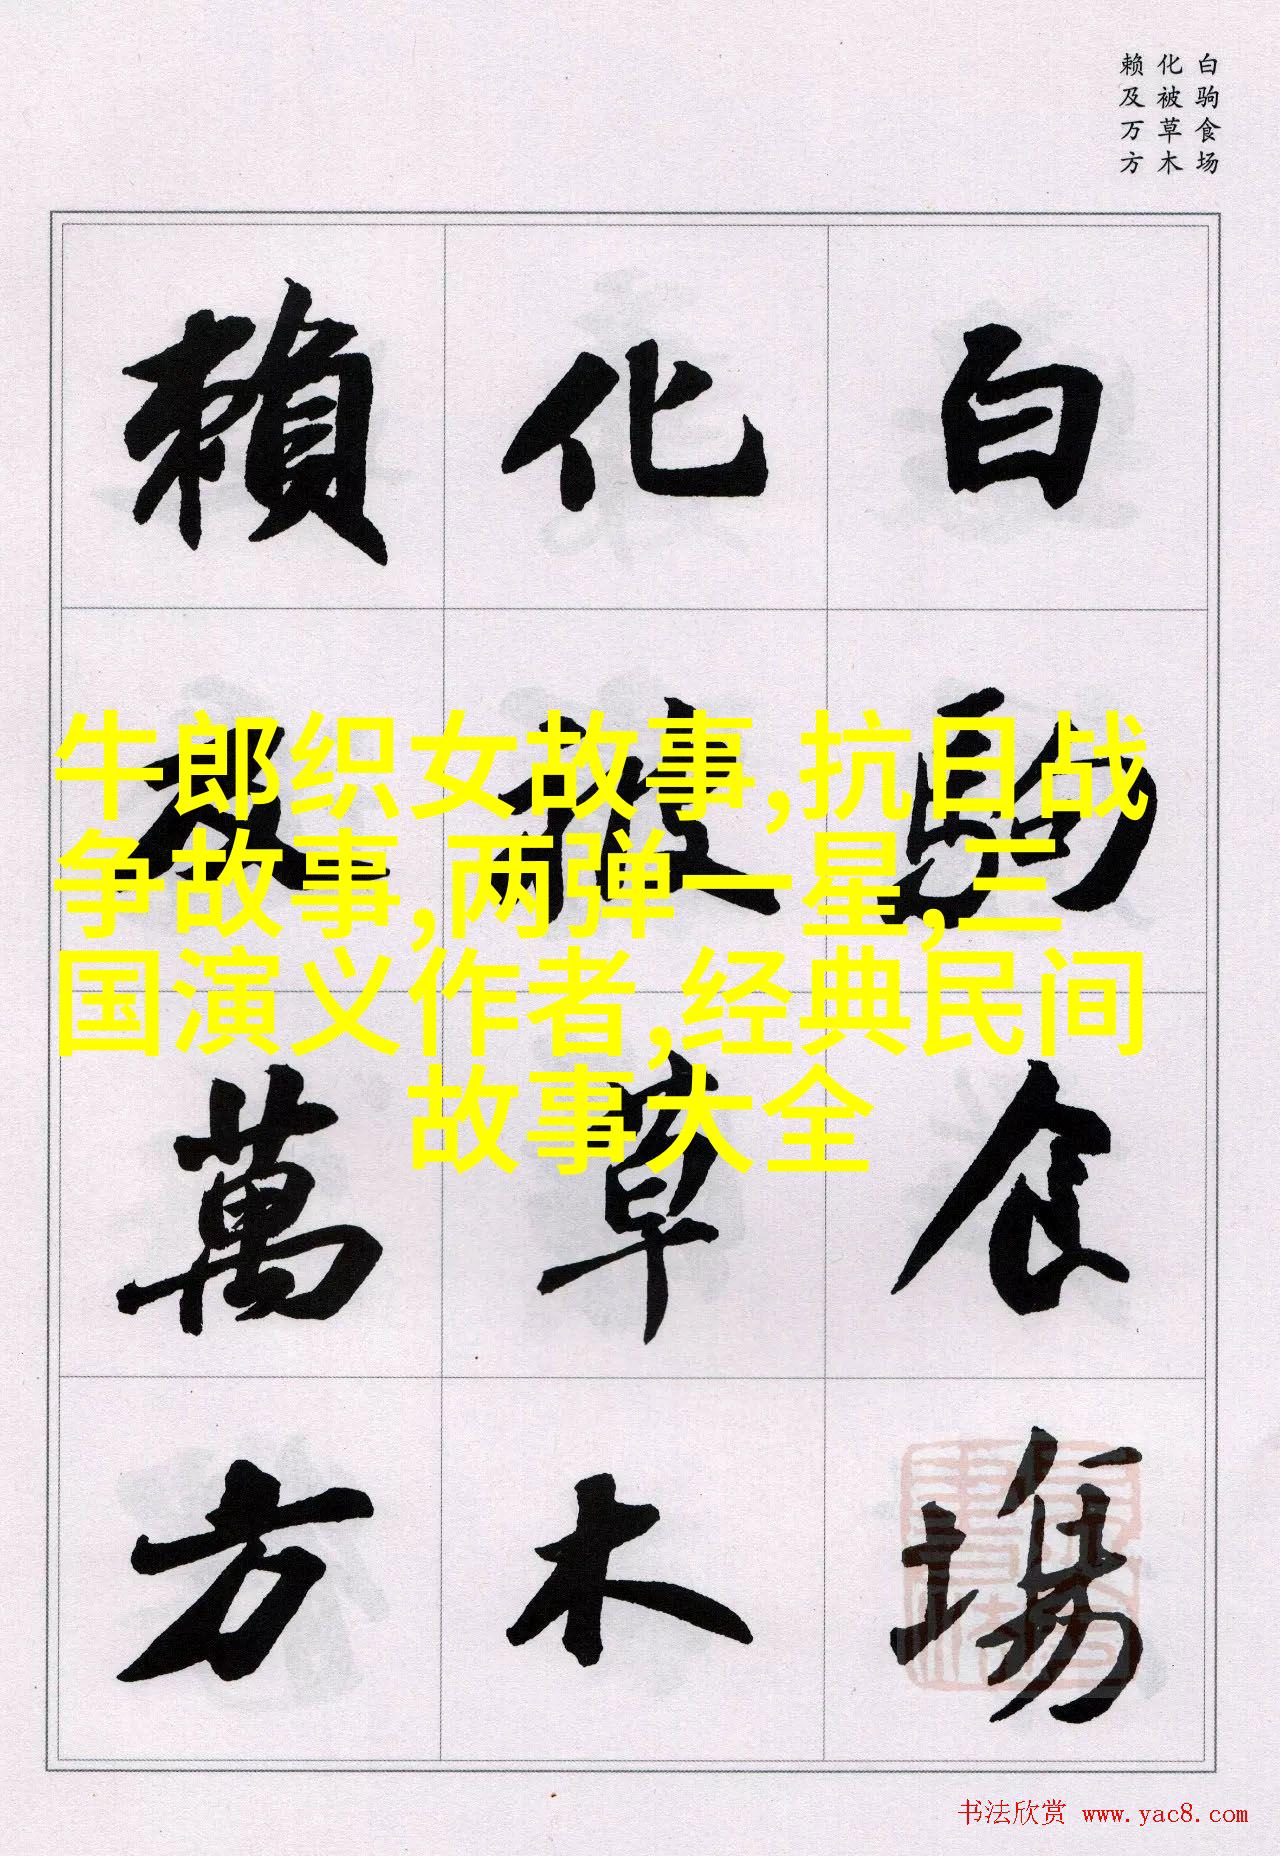 白驹食场
化被草木
赖及万方
白駒食場
化被草木
賴及萬方
牛郎织女故事,抗日战
争故事,两弹一星,三
国演义作者,经典民间
故事大全
书法欣赏 www.yac8.com